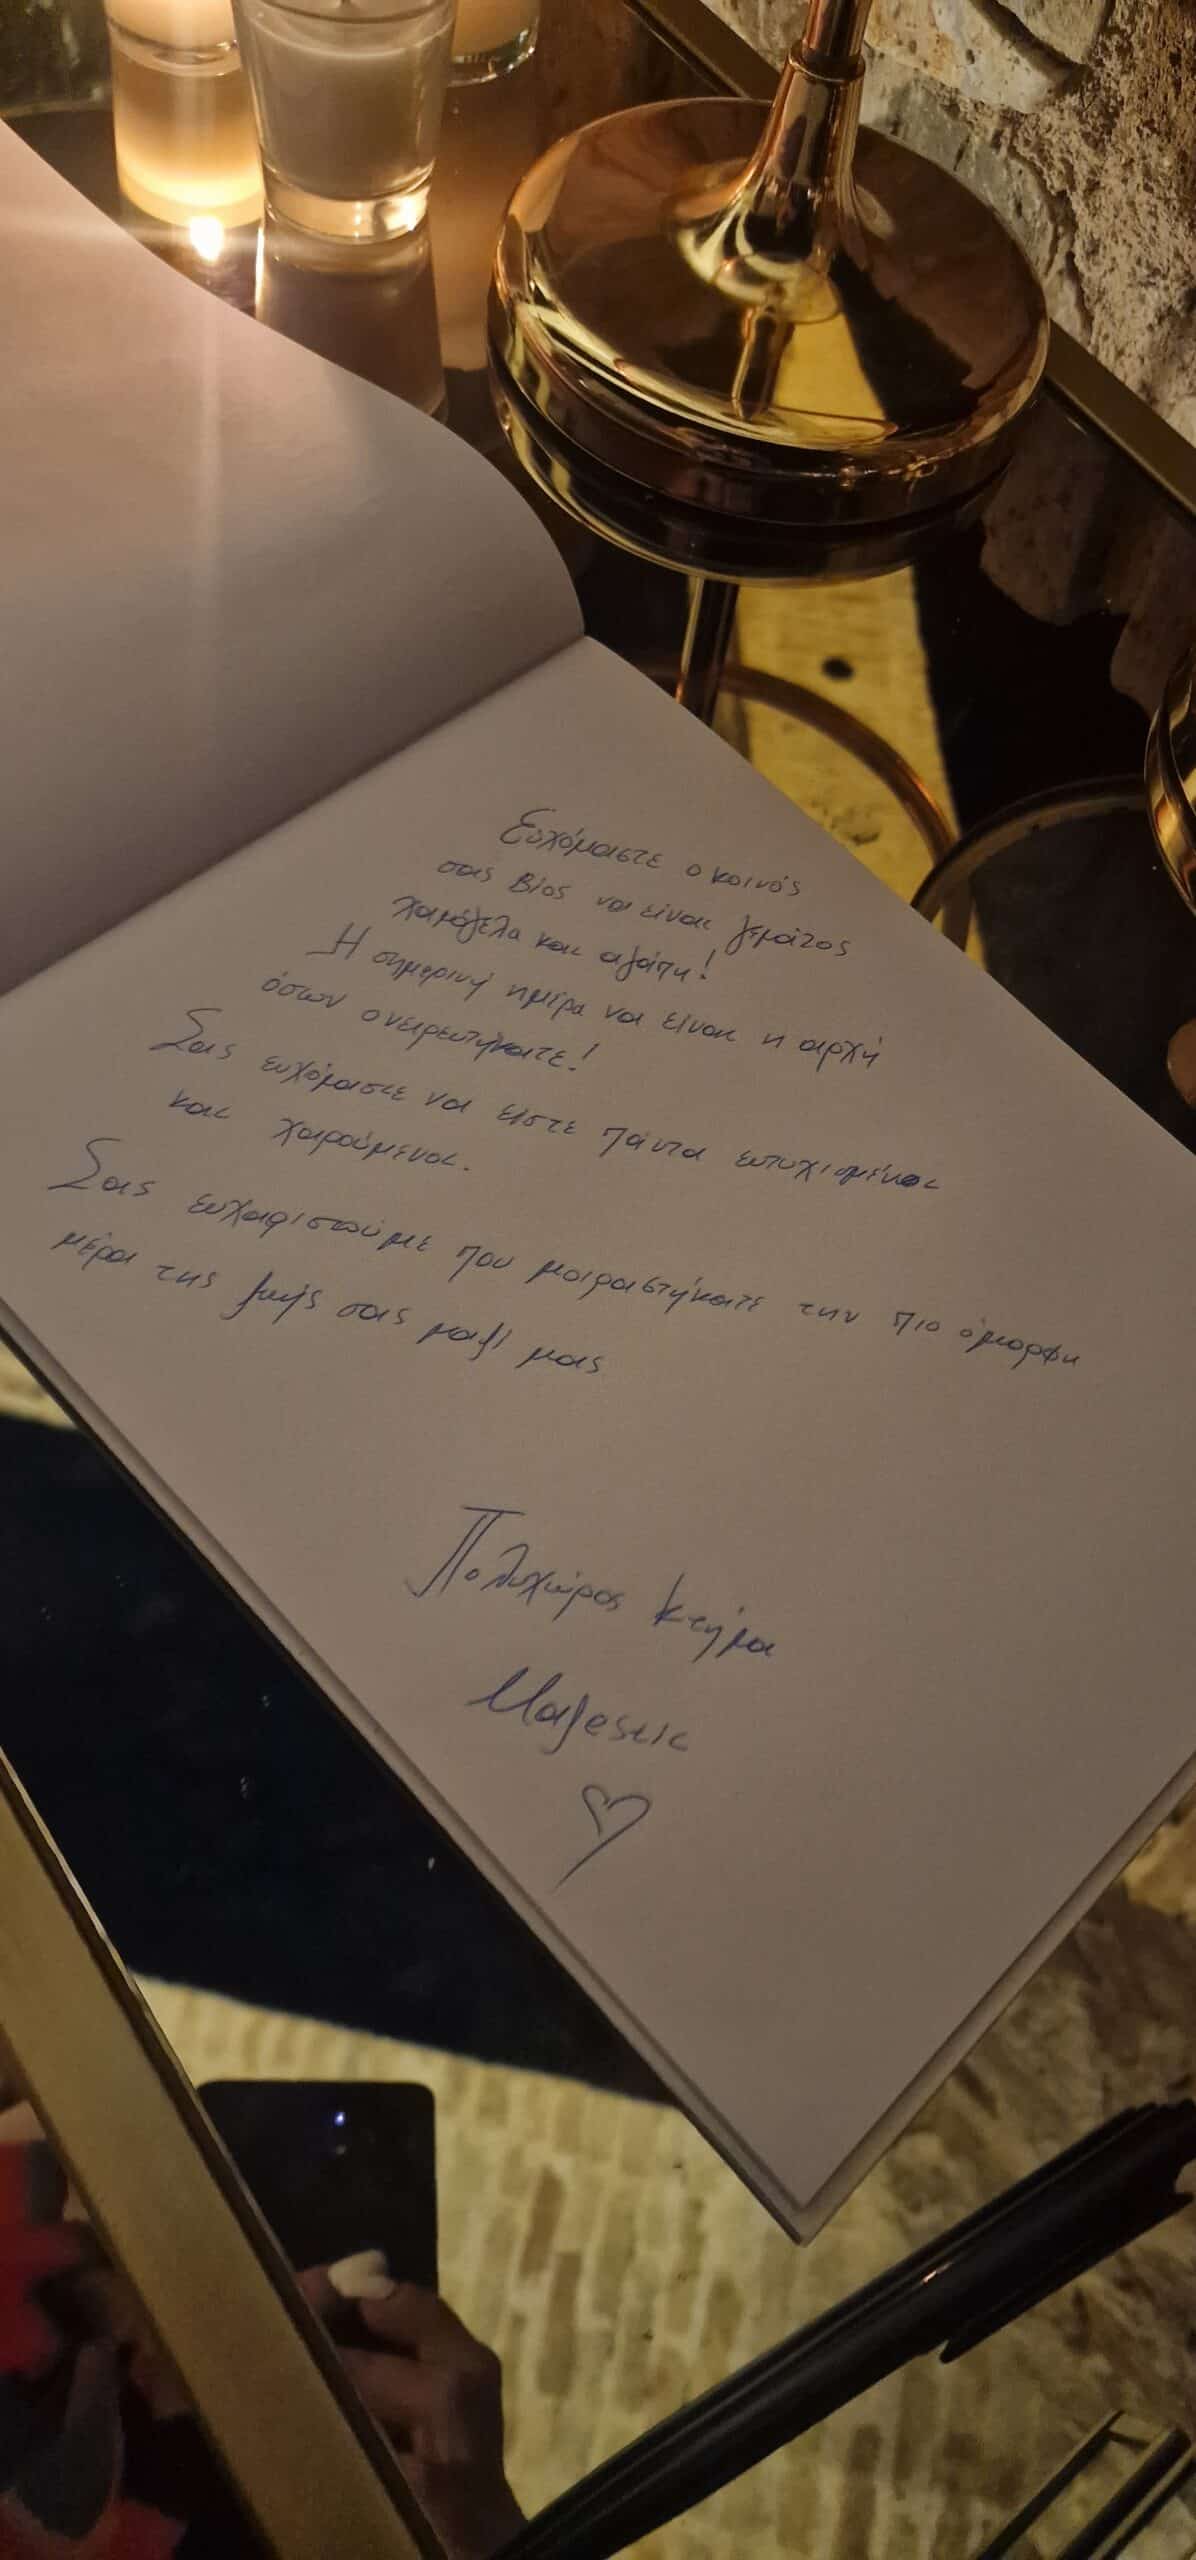 Ευχόμαστε ο κοινός
σας Βίος να είναι γεμάτος
χαμόγελα και αγάπη!
Η σημερινή ημέρα να είναι η αρχή
όσων ονειρευτήκατε!
Σας ευχόμαστε να είστε πάντα ευτυχισμένοι
και χαρούμενοι.
Σας ευχαριστούμε που μοιραστήκατε την πιο όμορφη
μέρα της ζωής σας μαζί μας
Πολυχώρος Κτήμα
Majestic